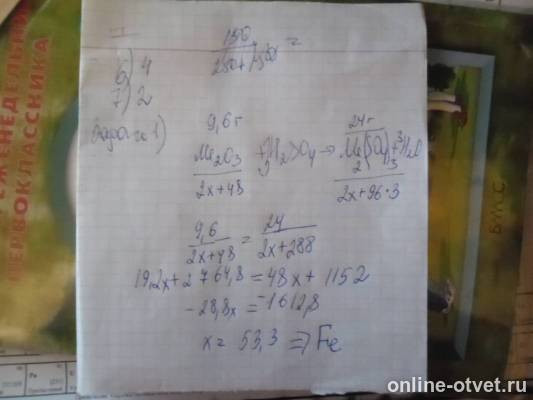 I
150
250+150x =
6) 4
7) 2
Задача 1)
9,6г 24г
Me₂O₃ + 3H₂SO₄ → Me₂(SO₄)₃ + 3H₂O
2x+48 2x+96·3
9,6/2x+48 = 24/2x+288
19,2x+2764,8=48x+1152
-28,8x=-1612,8
x= 53,3 => Fe
ЕЖЕНЕДЕЛЬНИК
ПЕРВОКЛАССНИКА
online-otvet.ru